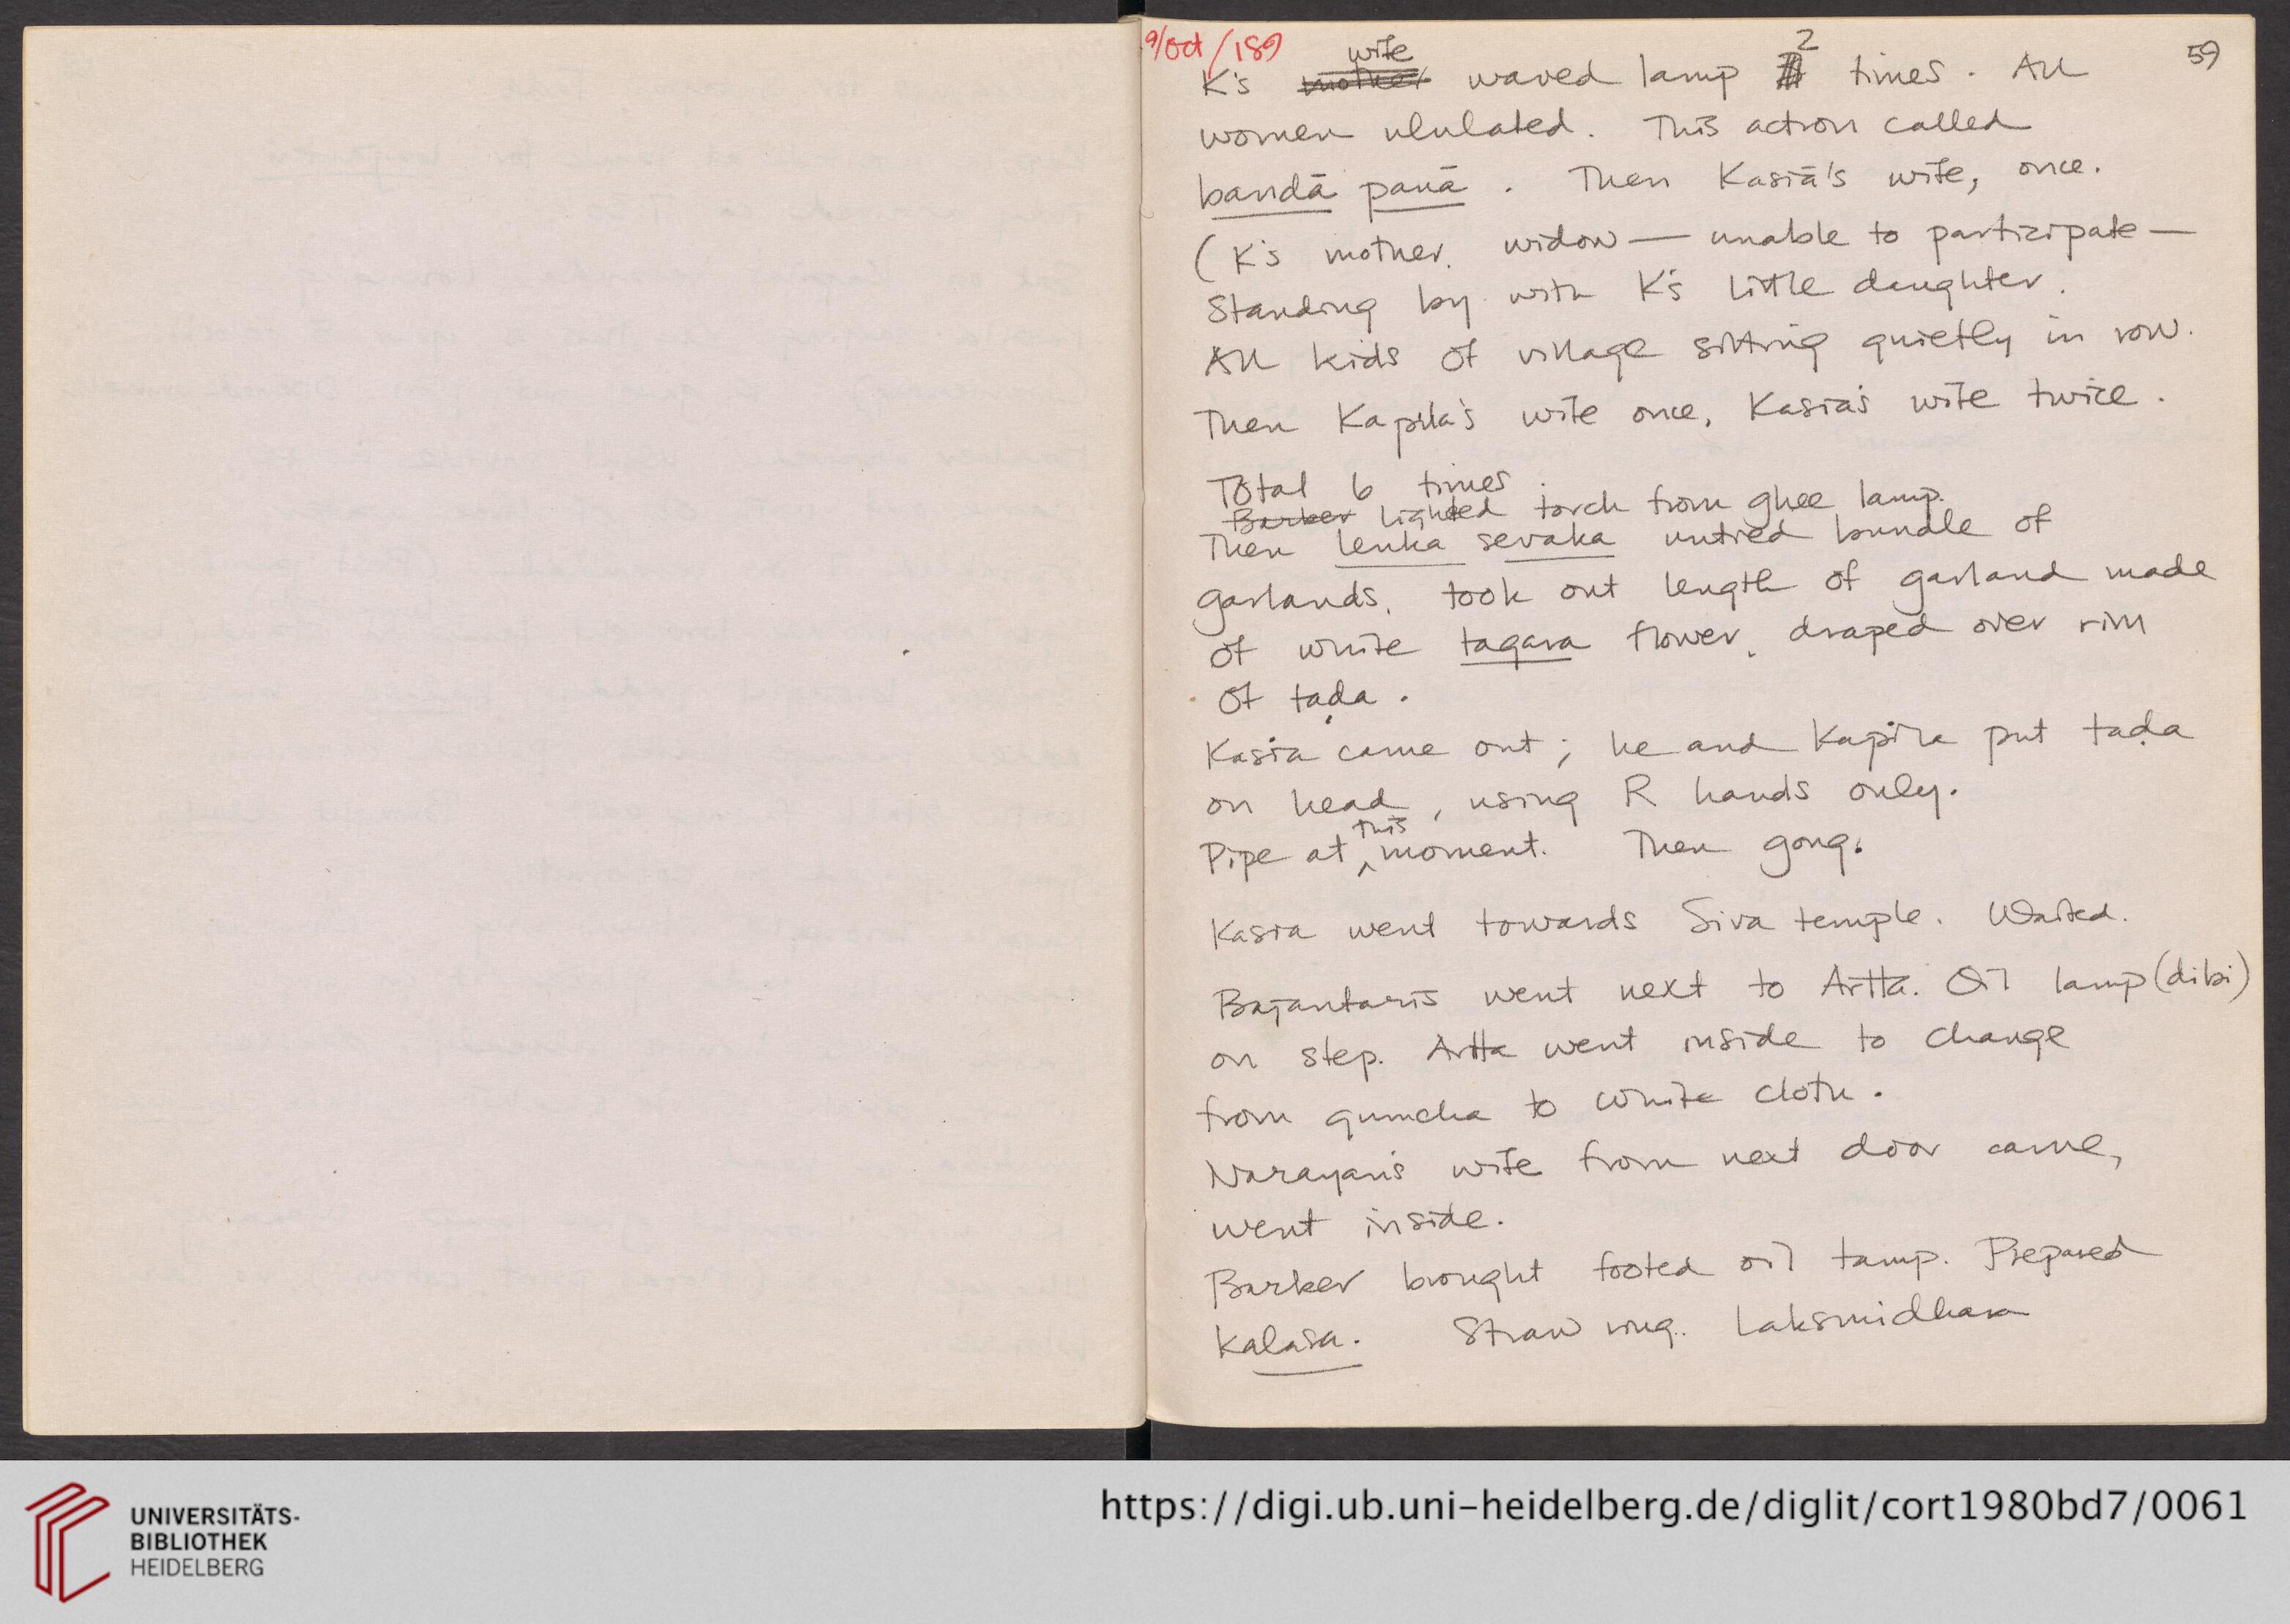 9/Oct/189
59
wife 2
K's mother waved lamp times. All
women ululated. This action called
bandā panā. Then Kasiā's wife, once.
(K's mother, widow — unable to participate —
Standing by with K's little daughter.
All kids of village sitting quietly in row.
Then Kapila's wife once, Kasia's wife twice.
Total 6 times.
Barber lighted torch from ghee lamp.
Then lenka sevaka untied bundle of
garlands, took out length of garland made
of white tagara flower, draped over rim
of taḍa.
Kasia came out; he and Kapila put taḍa
on head, using R hands only.
this
Pipe at ^ moment. Then gong.
Kasia went towards Siva temple. Waited.
Bajantaris went next to Artta. Oil lamp (dibi)
on step. Artta went inside to change
from gumcha to white cloth.
Narayan's wife from next door came,
went inside.
Barber brought footed oil lamp. Prepared
Kalasa. Straw ring. Laksmidhara
UNIVERSITÄTS-
BIBLIOTHEK
HEIDELBERG
https://digi.ub.uni-heidelberg.de/diglit/cort1980bd7/0061